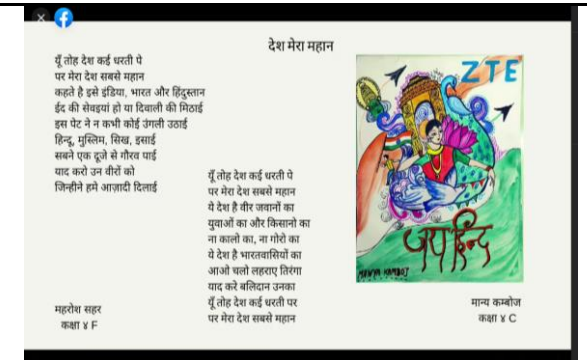 देश मेरा महान
यूँ तोह देश कई धरती पे
पर मेरा देश सबसे महान
कहते है इसे इंडिया, भारत और हिंदुस्तान
ईद की सेवइयां हो या दिवाली की मिठाई
इस पेट ने न कभी कोई उंगली उठाई
हिन्दू, मुस्लिम, सिख, इसाई
सबने एक दूजे से गौरव पाई
याद करो उन वीरों को
जिन्हीने हमे आज़ादी दिलाई
महरोश सहर
कक्षा ४ F
यूँ तोह देश कई धरती पे
पर मेरा देश सबसे महान
ये देश है वीर जवानों का
युवाओं का और किसानो का
ना कालो का, ना गोरो का
ये देश है भारतवासियों का
आओ चलो लहराए तिरंगा
याद करे बलिदान उनका
यूँ तोह देश कई धरती पर
पर मेरा देश सबसे महान
ZTE
जय हिन्द
MANYA KAMBOJ
मान्य कम्बोज
कक्षा ४ C